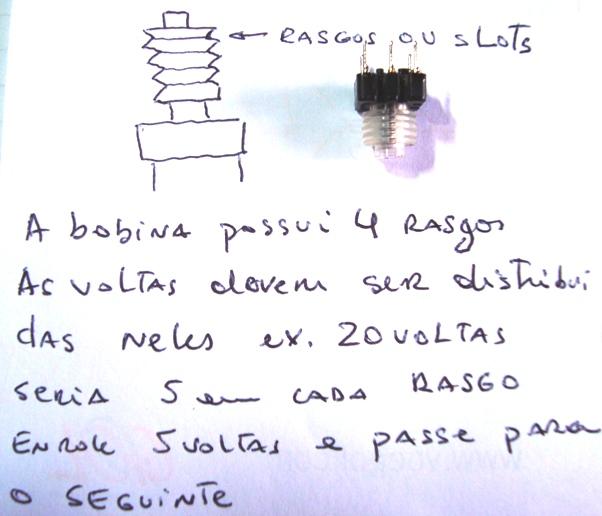 RASGOS OU SLOTS
A bobina possui 4 RASgos
As voltas devem ser distribui
das neles ex. 20 voltas
seria 5 em cada RASGO
Enrole 5 voltas e passe para
o SEGUINTE